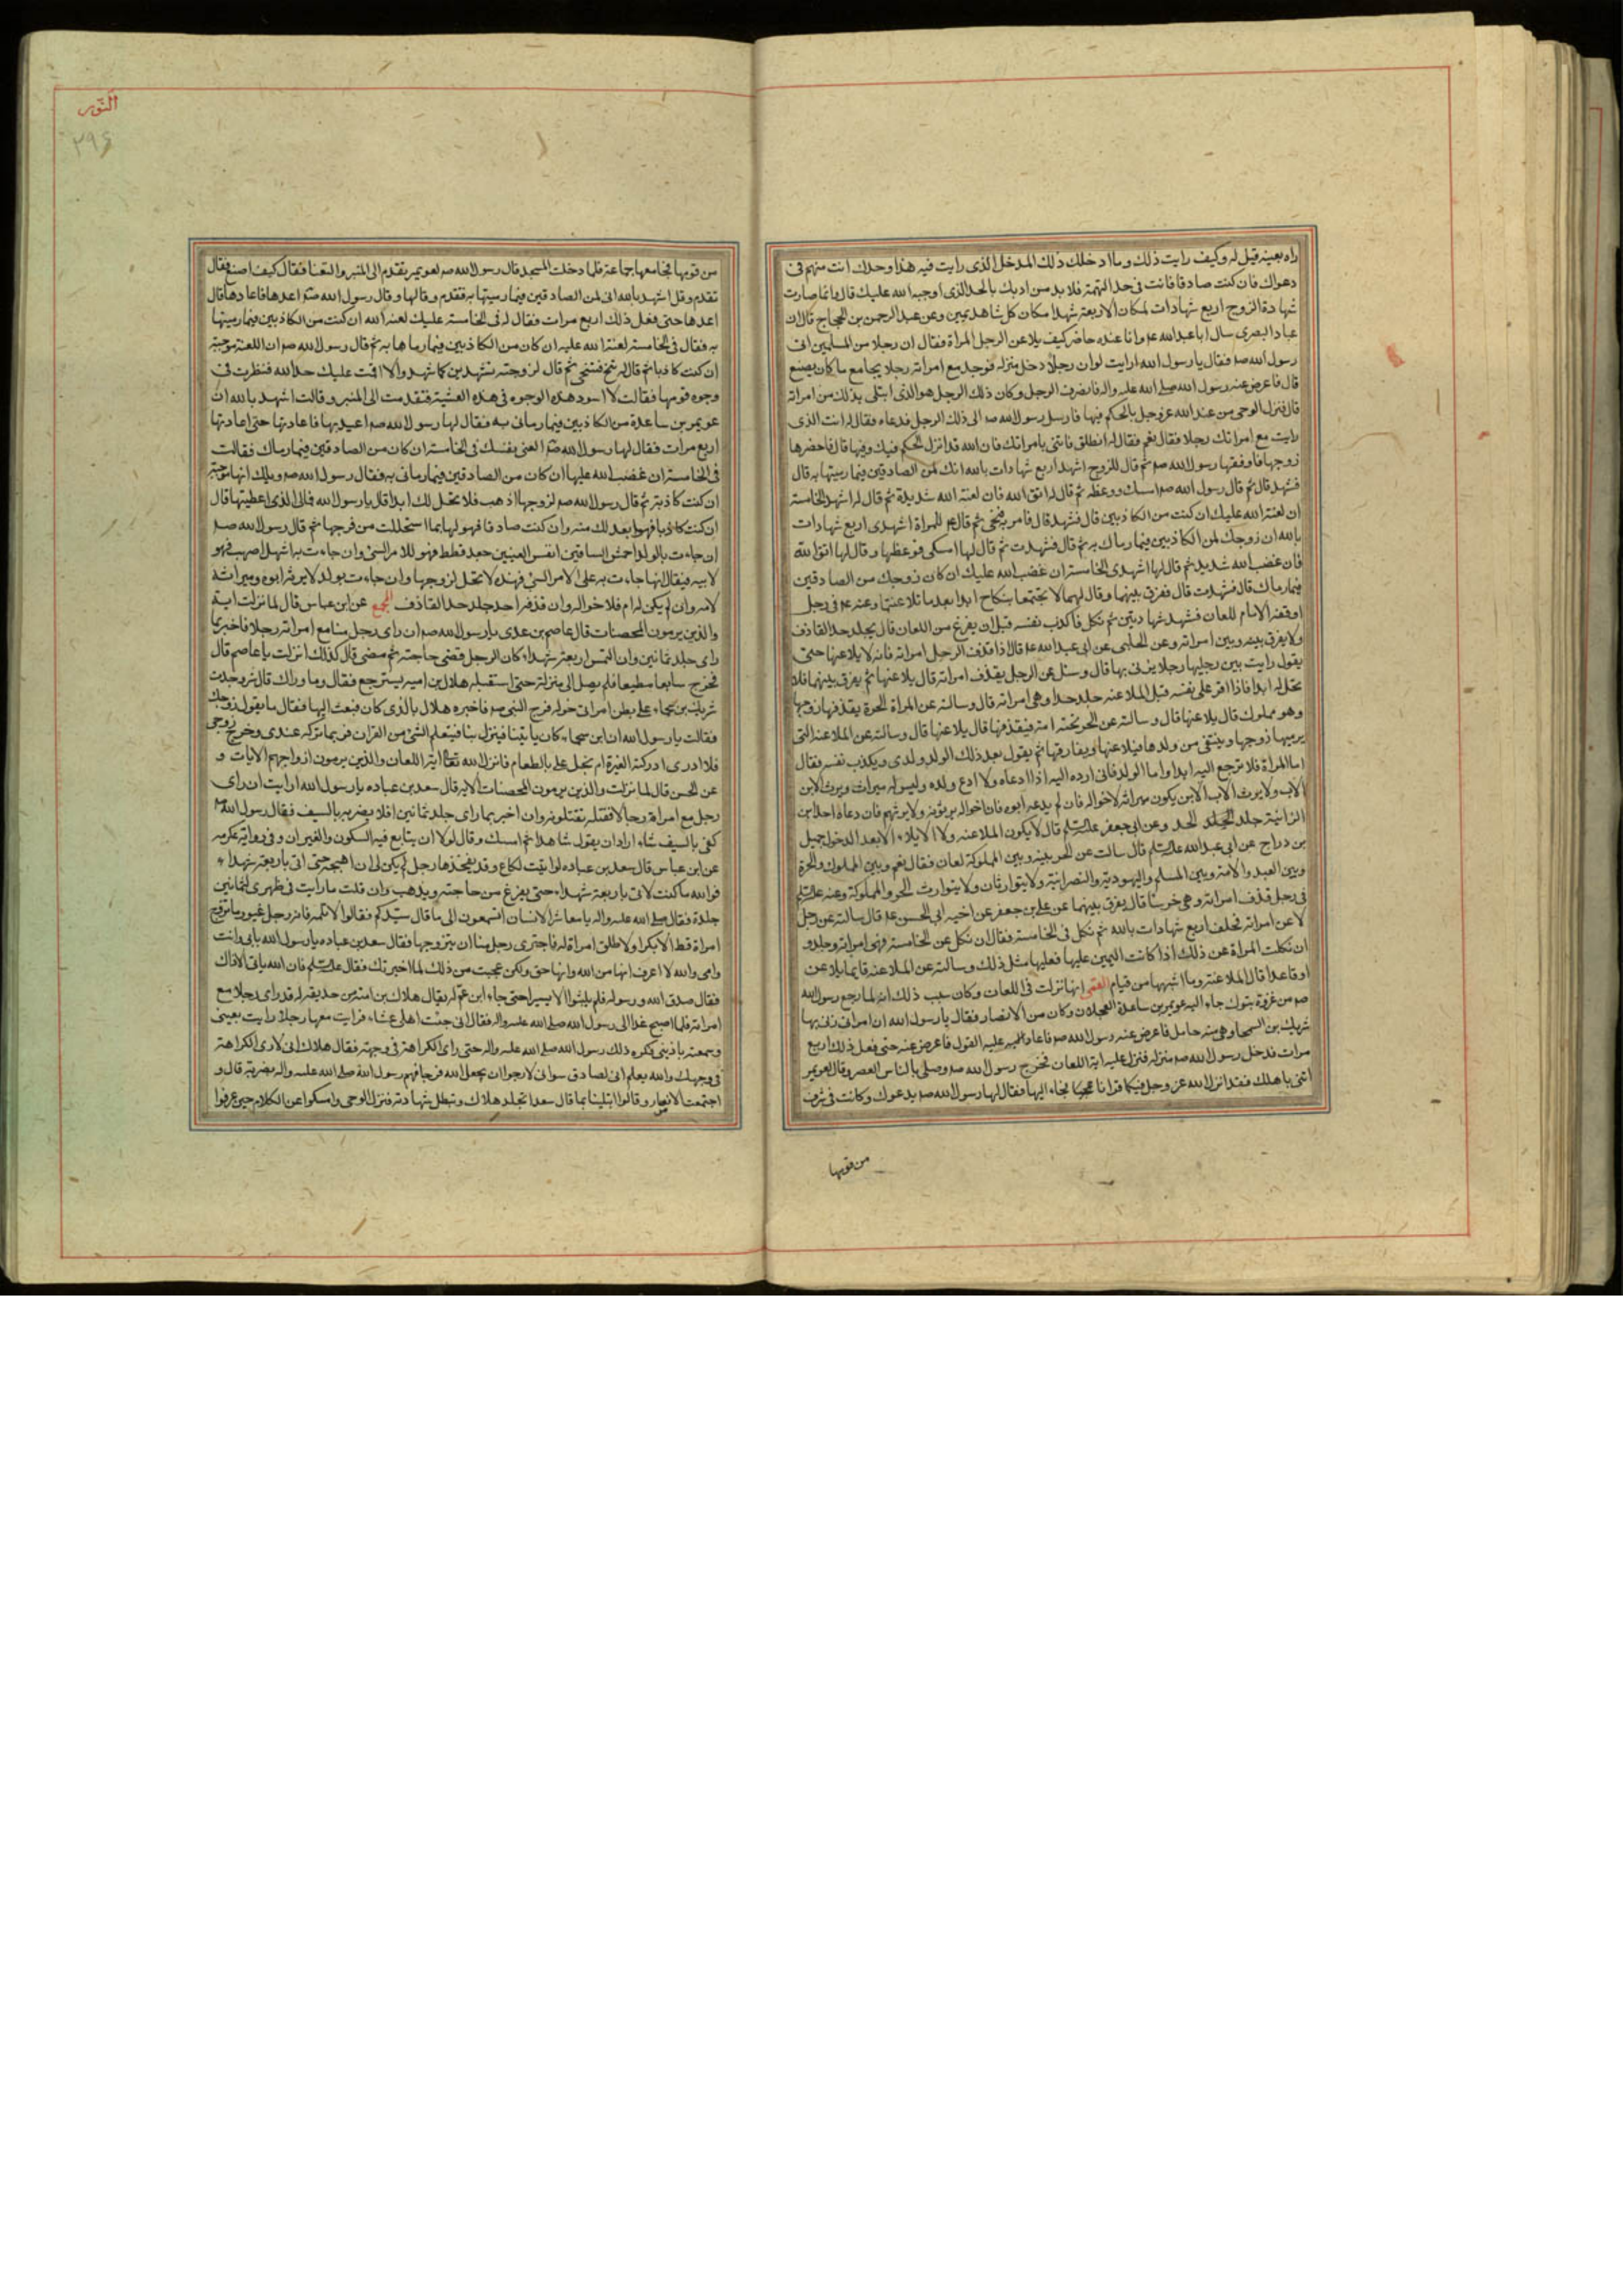 راه بعينه قيل له وكيف رايت ذلك وما ادخلك ذلك المدخل الذى رايت فيه هذا وحدك انت متهم فى
دعواك فان كنت صادقا فانت فى حد التهمة فلا بد من ادبك بالحد الذى اوجبه الله عليك قال وانما صارت
شهادة الزوج اربع شهادات لمكان الاربعة شهدا مكان كل شاهد يمين وعن عبد الرحمن بن الحجاج قال ان
عباد البصرى سال ابا عبد الله ع وانا عنده حاضر كيف يلاعن الرجل المراة فقال ان رجلا من المسلمين اتى
رسول الله ص فقال يا رسول الله ارايت لو ان رجلا دخل منزله فوجد مع امراته رجلا يجامع ما كان يصنع
قال فاعرض عنه رسول الله صلى الله عليه واله فانصرف الرجل وكان ذلك الرجل هو الذى ابتلى بذلك من امراته
قال فنزل الوحى من عند الله عز وجل بالحكم فيها فارسل رسول الله ص الى ذلك الرجل فدعاه فقال له انت الذى
رايت مع امراتك رجلا فقال نعم فقال له انطلق فاتنى بامراتك فان الله قد انزل الحكم فيك وفيها قال فاحضرها
زوجها فاوقفها رسول الله ص ثم قال للزوج اشهد اربع شهادات بالله انك لمن الصادقين فيما رميتها به قال
فشهد قال ثم قال رسول الله ص امسك ووعظه ثم قال له اتق الله فان لعنة الله شديدة ثم قال له اشهد الخامسة
ان لعنة الله عليك ان كنت من الكاذبين قال فشهد قال فامر به فنحى ثم قال ع للمراة اشهدى اربع شهادات
بالله ان زوجك لمن الكاذبين فيما رماك به ثم قال فشهدت ثم قال لها امسكى فوعظها وقال لها اتقوا الله
فان غضب الله شديد ثم قال لها اشهدى الخامسة ان غضب الله عليك ان كان زوجك من الصادقين
فيما رماك قال فشهدت قال ففرق بينهما وقال لهما لا تجتمعا بنكاح ابدا بعد ما تلاعنتما وعنه ع فى رجل
اوقفه الامام للعان فشهد شهادتين ثم نكل فاكذب نفسه قبل ان يفرغ من اللعان قال يجلد حد القاذف
ولا يفرق بينه وبين امراته وعن الحلبى عن ابى عبد الله ع قال اذا قذف الرجل امراته فانه لا يلاعنها حتى
يقول رايت بين رجليها رجلا يزنى بها قال وسئل عن الرجل يقذف امراته قال يلاعنها ثم يفرق بينهما فلا
تحل له ابدا فاذا اقر على نفسه قبل الملاعنه جلد حدا وهى امراته قال وسالته عن المراة الحرة يقذفها زوجها
وهو مملوك قال يلاعنها قال وسالته عن الحر تحته امة فيقذفها قال يلاعنها قال وسالته عن الملاعنه التى
يرميها زوجها وينتفى من ولدها فيلاعنها ويفارقها ثم يقول بعد ذلك الولد ولدى ويكذب نفسه فقال
اما المراة فلا ترجع اليه ابدا واما الولد فانى ارده اليه اذا ادعاه ولا ادع ولده وليس له ميراث ويرث الابن
الاب ولا يرث الاب الابن يكون ميراثه لاخواله فان لم يدعه ابوه فان اخواله يرثونه ولا يرثهم فان دعاه احد ابن
الزانية جلد الحد وعن ابى جعفر عليه السلام قال لا يكون الملاعنه ولا الايلاء الا بعد الدخول جميل
بن دراج عن ابى عبد الله عليه السلام قال سالت عن الحر بينه وبين المملوكة لعان فقال نعم وبين المملوك والحرة
وبين العبد والامة وبين المسلم واليهودية والنصرانية ولا يتوارثان ولا يتوارث الحر والمملوكة وعنه عليه السلم
فى رجل قذف امراته وهى خرسا قال يفرق بينهما عن على بن جعفر عن اخيه ابى الحسن ع قال سالته عن رجل
لاعن امراته فحلف اربع شهادات بالله ثم نكل فى الخامسة فقال ان نكل عن الخامسة فهى امراته وجلد و
ان نكلت المراة عن ذلك اذا كانت اليمين عليها فعليها مثل ذلك وسالته عن الملاعنه قايما يلاعن
او قاعدا قال الملاعنة وما اشبهها من قيام القمى انها نزلت فى اللعان وكان سبب ذلك انه لما رجع رسول الله
ص من غزوة تبوك جاء اليه عويمر بن ساعدة العجلان وكان من الانصار فقال يا رسول الله ان امراتى زنى بها
شريك بن السمحا وهى منه حامل فاعرض عنه رسول الله ص فاعاد عليه القول فاعرض عنه حتى فعل ذلك اربع
مرات فدخل رسول الله ص منزله فنزل عليه اية اللعان فخرج رسول الله ص وصلى بالناس العصر وقال لعويمر
اتنى باهلك فقد انزل الله عز وجل فيكما قرانا فجاء اليها فقال لها رسول الله ص يدعوك وكانت فى شرف
من قومها
النور
٢٩۶
من قومها فجا معها جماعة فلما دخلت المسجد قال رسول الله ص لعويمر تقدم الى المنبر والتعنا فقال كيف اصنع فقال
تقدم وقل اشهد بالله انى لمن الصادقين فيما رميتها به فتقدم وقالها وقال رسول الله ص اعدها فاعادها قال
اعدها حتى فعل ذلك اربع مرات فقال له فى الخامسة عليك لعنة الله ان كنت من الكاذبين فيما رميتها
به فقال فى الخامسة لعنة الله عليه ان كان من الكاذبين فيما رماها به ثم قال رسول الله ص ان اللعنة موجبة
ان كنت كاذبا ثم قال له تنح فتنحى ثم قال لزوجته تشهدين كما شهد والا اقمت عليك حد الله فنظرت فى
وجوه قومها فقالت لا اسود هذه الوجوه فى هذه العشية فتقدمت الى المنبر وقالت اشهد بالله ان
عويمر بن ساعدة من الكاذبين فيما رمانى به فقال لها رسول الله ص اعيديها فاعادتها حتى اعادتها
اربع مرات فقال لها رسول الله ص العنى نفسك فى الخامسة ان كان من الصادقين فيما رماك فقالت
فى الخامسة ان غضب الله عليها ان كان من الصادقين فيما رمانى به فقال رسول الله ص ويلك انها موجبة
ان كنت كاذبة ثم قال رسول الله ص لزوجها اذهب فلا تحل لك ابدا قال يا رسول الله فمالى الذى اعطيتها قال
ان كنت كاذبا فهو ابعد لك منه وان كنت صادقا فهو لها بما استحللت من فرجها ثم قال رسول الله ص
ان جاءت بالولد احمش الساقين انفس العينين جعد قطط فهو للامر السئ وان جاءت به اشهل اصهب فهو
لابيه فيقال انها جاءت به على الامر السئ فهذه لا تحل لزوجها وان جاءت بولد لا يرثه ابوه وميراثه
لامه وان لم يكن له ام فلاخواله وان قذفه احد جلد حد القاذف المجمع عن ابن عباس قال لما نزلت اية
والذين يرمون المحصنات قال عاصم بن عدى يا رسول الله ص ان راى رجل منا مع امراته رجلا فاخبر بما
راى جلد ثمانين وان التمس اربعة شهداء كان الرجل قضى حاجته ثم مضى قال كذلك انزلت يا عاصم قال
فخرج سامعا مطيعا فلم يصل الى منزله حتى استقبله هلال بن امية يسترجع فقال وما وراك قال شر وجدت
شريك بن سحماء على بطن امراتى خوله فرجع النبى ص فاخبره هلال بالذى كان فبعث اليها فقال ما يقول زوجك
فقالت يا رسول الله ان ابن سحماء كان ياتينا فينزل بنا فيتعلم الشئ من القران فربما تركه عندى وخرج زوجى
فلا ادرى ادركته الغيرة ام بخل على بالطعام فانزل الله تعالى اية اللعان والذين يرمون ازواجهم الايات و
عن الحسن قال لما نزلت والذين يرمون المحصنات الاية قال سعد بن عباده يا رسول الله ارايت ان راى
رجل مع امراته رجلا فقتله تقتلونه وان اخبر بما راى جلد ثمانين افلا يضربه بالسيف فقال رسول الله
كفى بالسيف شاء اراد ان يقول شاهدا ثم امسك وقال لولا ان يتابع فيه السكران والغيران وفى رواية عكرمه
عن ابن عباس قال سعد بن عباده لو اتيت لكاع وقد يفخذها رجل لم يكن لى ان اهيجه حتى اتى باربعة شهداء
فوالله ما كنت لاتى باربعة شهداء حتى يفرغ من حاجته ويذهب وان قلت ما رايت فى ظهرى لثمانين
جلدة فقال صلى الله عليه واله يا معاشر الانسان اتسمعون الى ما قال سيدكم فقالوا لا تلمه فانه رجل غيور ما تزوج
امراة قط الا بكرا ولا طلق امراة له فاجترى رجل منا ان يتزوجها فقال سعد بن عباده يا رسول الله بابى وانت
وامى والله لا اعرف انها من الله وانها حق ولكن عجبت من ذلك لما اخبرتك فقال عليه السلم فان الله يابى الا ذاك
فقال صدق الله ورسوله فلم يلبثوا الا يسيرا حتى جاء ابن عم له يقال هلال بن امية من حديقة له قد راى رجلا مع
امراته فلما اصبح غدا الى رسول الله صلى الله عليه واله فقال انى جئت اهلى عشاء فرايت معها رجلا رايت بعينى
وسمعته باذنى فكره ذلك رسول الله صلى الله عليه واله حتى راى الكراهة فى وجهه فقال هلال انى لارى الكراهة
فى وجهك والله يعلم انى لصادق سوانى لارجوا ان يجعل الله فرجا فهم رسول الله صلى الله عليه واله بضربه قال و
اجتمعت الانصار وقالوا ابتلينا بما قال سعد اتجلد هلال وتبطل شهادته فنزل الوحى وامسكوا عن الكلام حين عرفوا